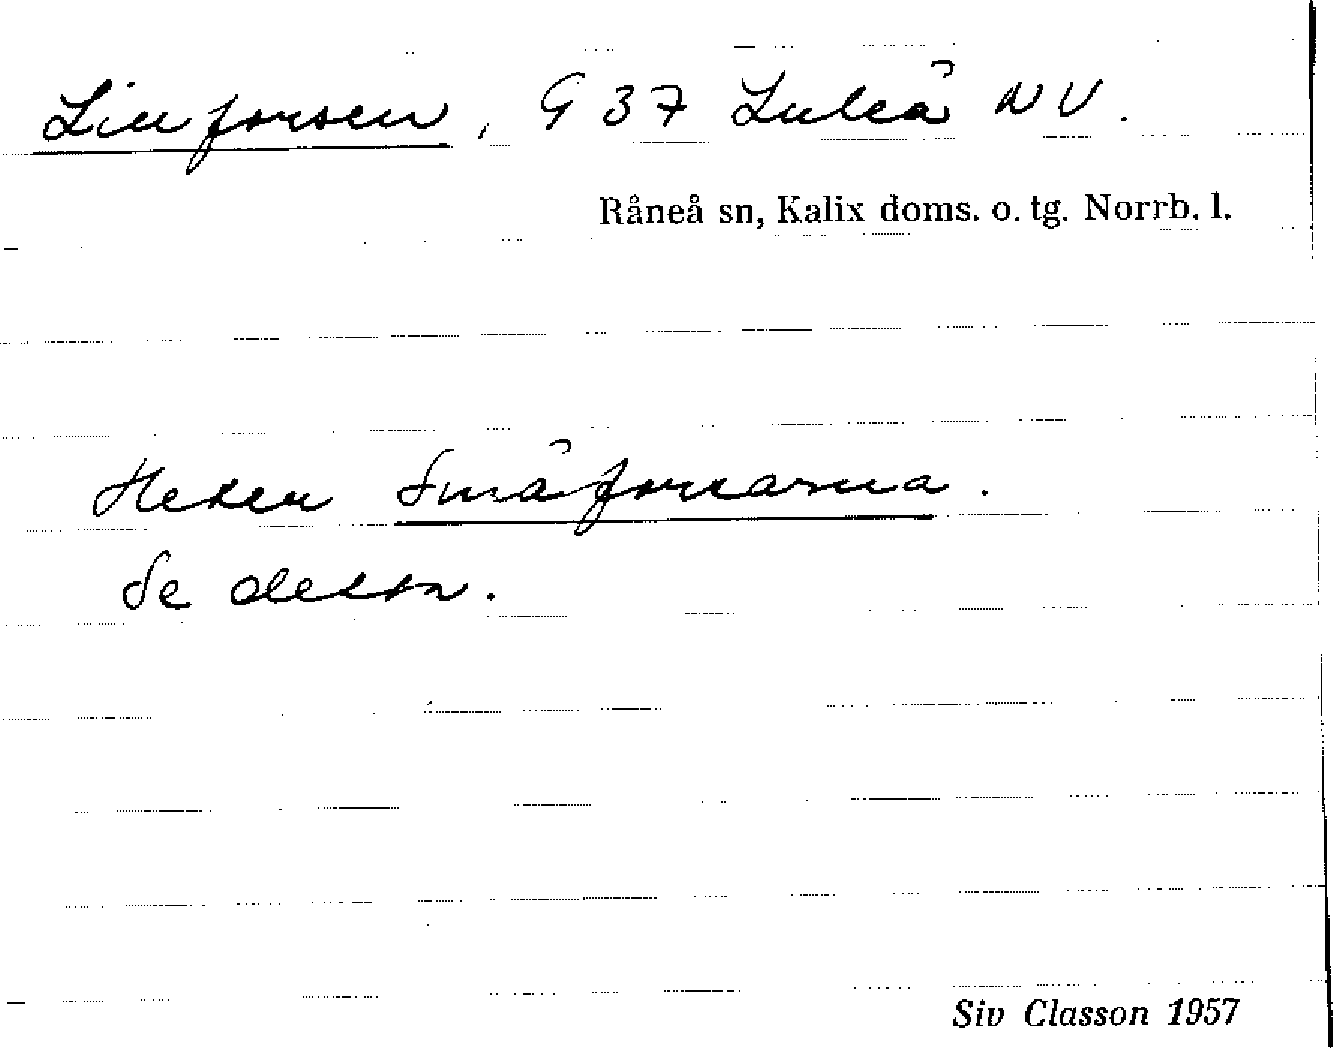 Linforsen, G 37 Luleå NV.
Råneå sn, Kalix doms. o. tg. Norrb. l.
Heter Småforsarna.
Se detta.
Siv Classon 1957